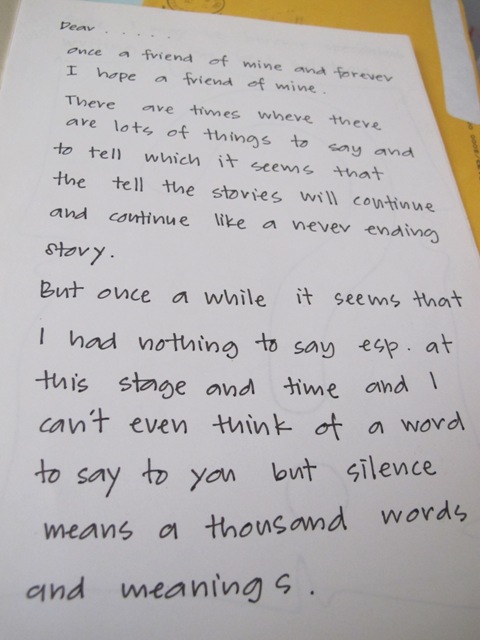 Dear . . . . .
once a friend of mine and forever
I hope a friend of mine.
There are times where there
are lots of things to say and
to tell which it seems that
the tell the stories will continue
and continue like a never ending
story.
But once a while it seems that
I had nothing to say esp. at
this stage and time and I
can't even think of a word
to say to you but silence
means a thousand words
and meanings.